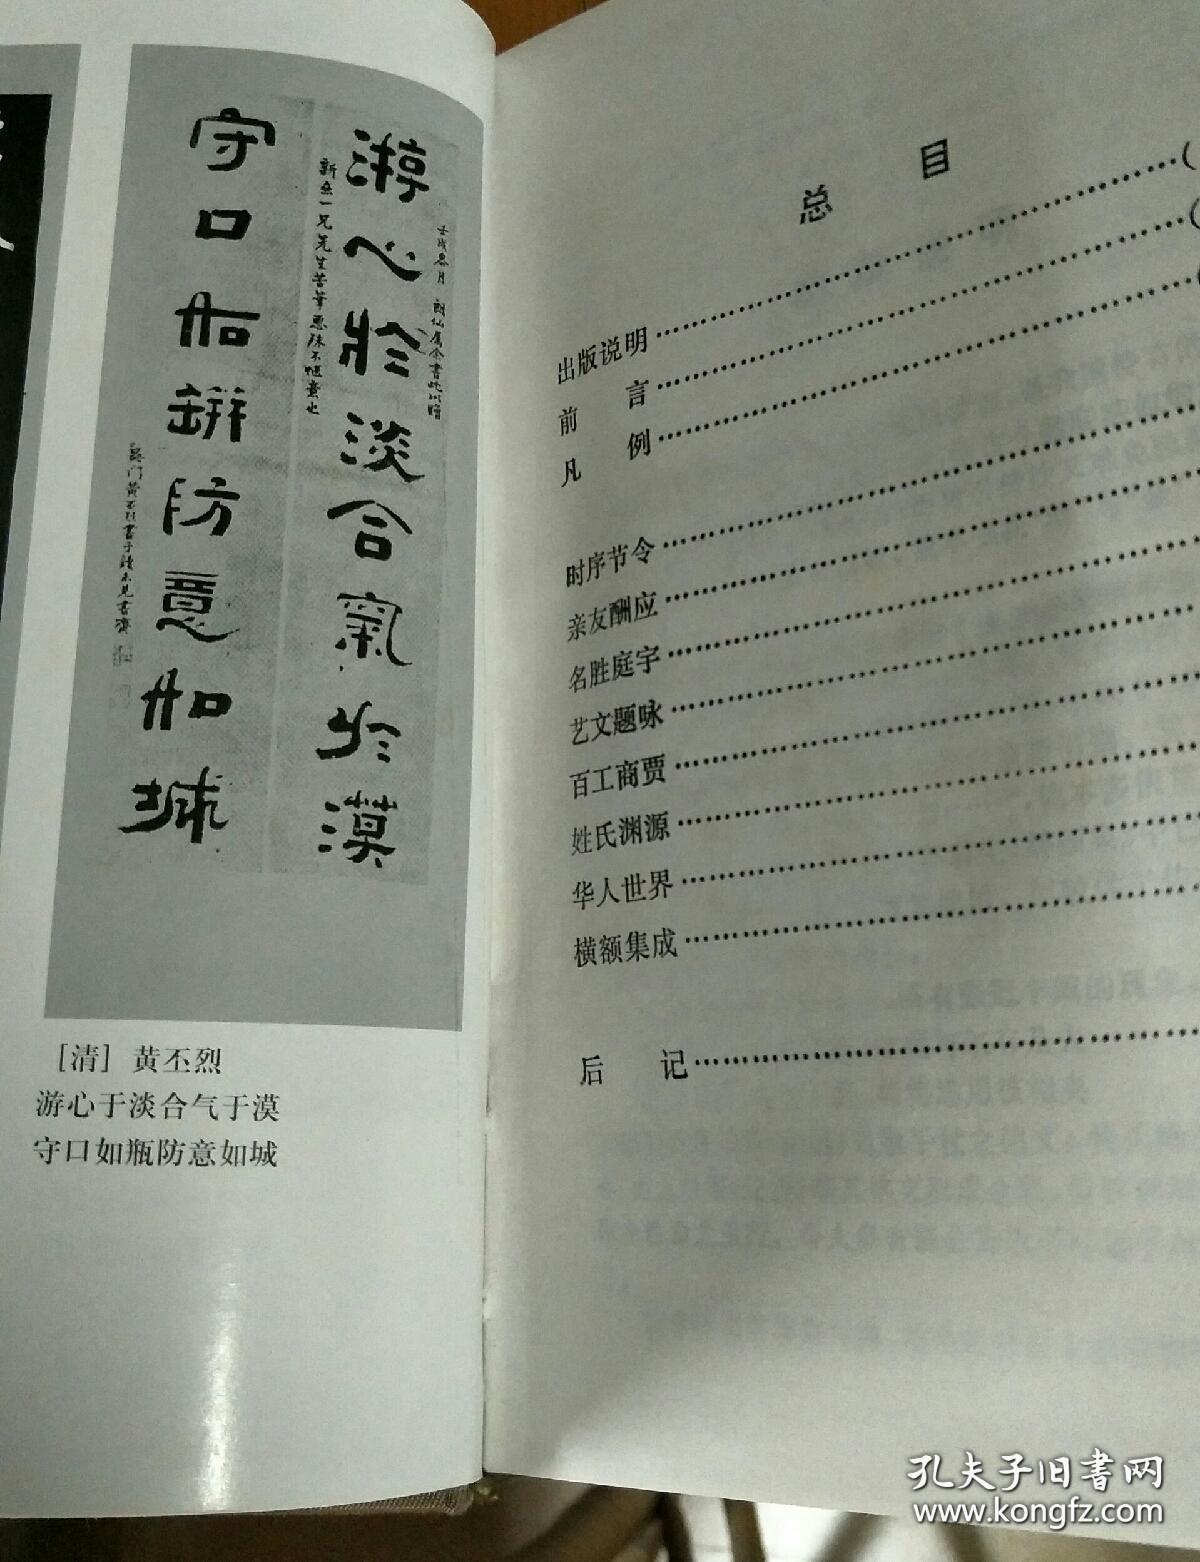 游心於淡合氣於漠
守口如缾防意如城
[清] 黄丕烈
游心于淡合气于漠
守口如瓶防意如城
总 目
出版说明…………………………(
前 言…………………………(
凡 例…………………………(
时序节令…………………………
亲友酬应…………………………
名胜庭宇…………………………
艺文题咏…………………………
百工商贾…………………………
姓氏渊源…………………………
华人世界…………………………
横额集成…………………………
后 记…………………………
孔夫子旧书网
www.kongfz.com